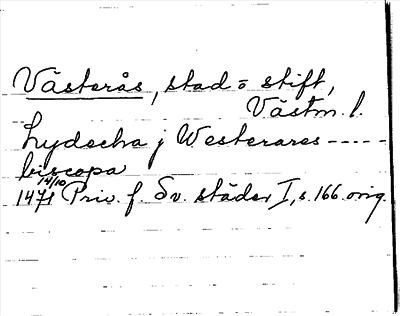 Västerås, stad o stift,
Västm. l.
Lydecha j Westerares -----
biscopa
14/10
1471 Priv. f. Sv. städer I, s. 166. orig.